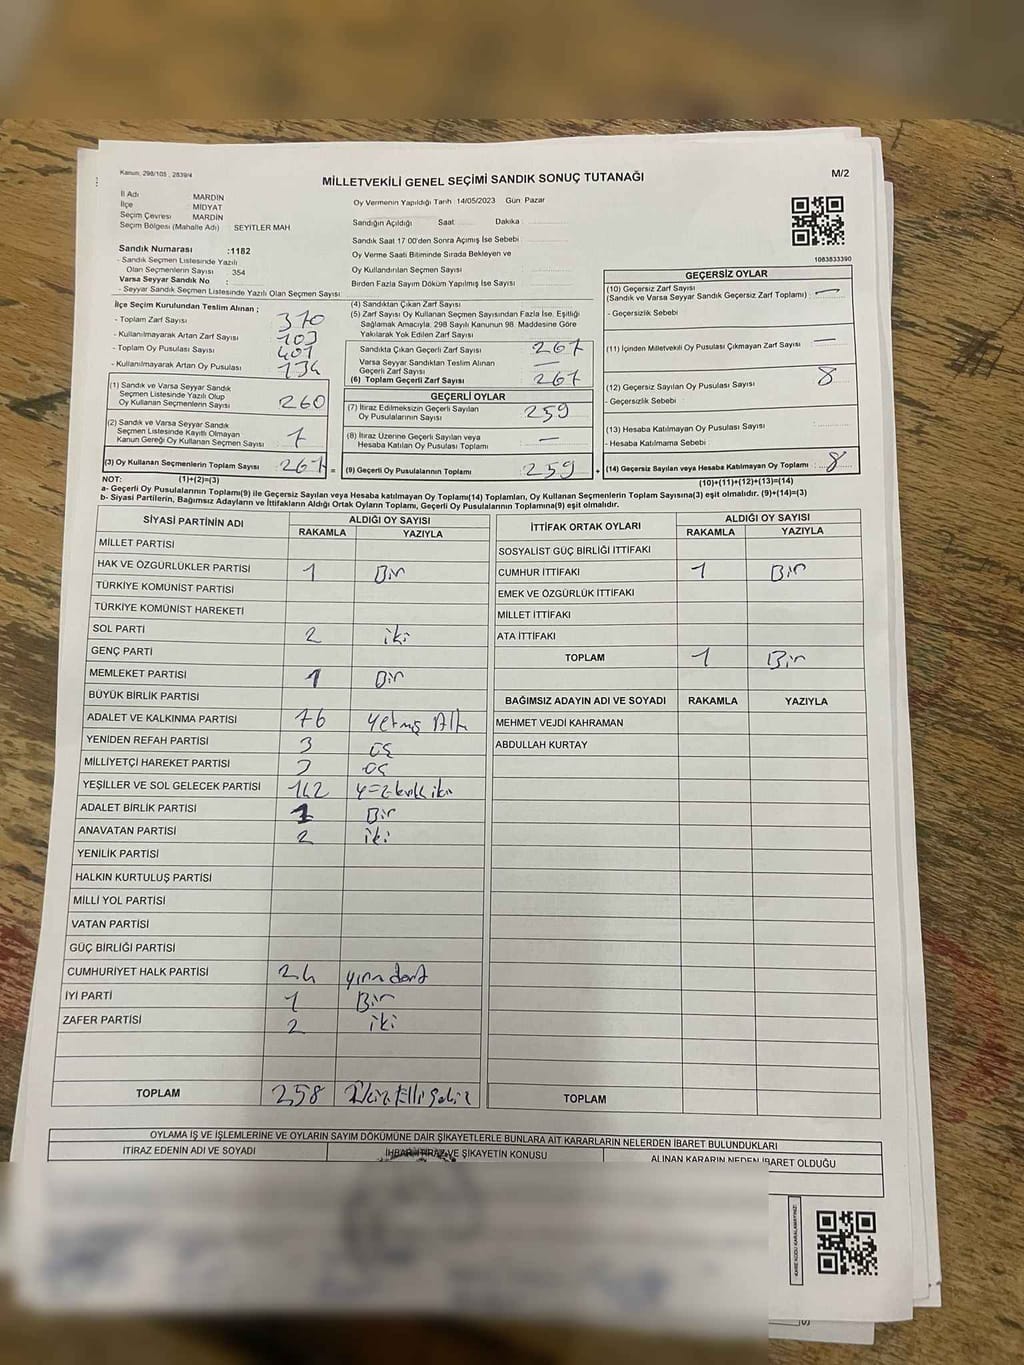 Kanun, 298/105 , 2839/4
MİLLETVEKİLİ GENEL SEÇİMİ SANDIK SONUÇ TUTANAĞI
M/2
İl Adı MARDİN
İlçe MİDYAT
Seçim Çevresi MARDİN
Seçim Bölgesi (Mahalle Adı) SEYİTLER MAH
Oy Vermenin Yapıldığı Tarih 14/05/2023 Gün: Pazar
Sandığın Açıldığı Saat Dakika
Sandık Saat 17:00'den Sonra Açımış İse Sebebi
Oy Verme Saati Bitiminde Sırada Bekleyen ve
Oy Kullandırılan Seçmen Sayısı
Birden Fazla Sayım Döküm Yapılmış İse Sayısı
1083833390
Sandık Numarası :1182
- Sandık Seçmen Listesinde Yazılı
Olan Seçmenlerin Sayısı 354
Varsa Seyyar Sandık No :
- Seyyar Sandık Seçmen Listesinde Yazılı Olan Seçmen Sayısı
İlçe Seçim Kurulundan Teslim Alınan ;
- Toplam Zarf Sayısı 370
- Kullanılmayarak Artan Zarf Sayısı 103
- Toplam Oy Pusulası Sayısı 401
- Kullanılmayarak Artan Oy Pusulası 134
(1) Sandık ve Varsa Seyyar Sandık
Seçmen Listesinde Yazılı Olup
Oy Kullanan Seçmenlerin Sayısı 260
(2) Sandık ve Varsa Seyyar Sandık
Seçmen Listesinde Kayıtlı Olmayan
Kanun Gereği Oy Kullanan Seçmen Sayısı 7
(3) Oy Kullanan Seçmenlerin Toplam Sayısı 267 =
(4) Sandıktan Çıkan Zarf Sayısı
(5) Zarf Sayısı Oy Kullanan Seçmen Sayısından Fazla İse, Eşitliği
Sağlamak Amacıyla, 298 Sayılı Kanunun 98. Maddesine Göre
Yakılarak Yok Edilen Zarf Sayısı
Sandıkta Çıkan Geçerli Zarf Sayısı 267
Varsa Seyyar Sandıktan Teslim Alınan
Geçerli Zarf Sayısı —
(6) Toplam Geçerli Zarf Sayısı 267
GEÇERLİ OYLAR
(7) İtiraz Edilmeksizin Geçerli Sayılan
Oy Pusulalarının Sayısı 259
(8) İtiraz Üzerine Geçerli Sayılan veya
Hesaba Katılan Oy Pusulası Toplamı —
(9) Geçerli Oy Pusulalarının Toplamı 259 +
GEÇERSİZ OYLAR
(10) Geçersiz Zarf Sayısı
(Sandık ve Varsa Seyyar Sandık Geçersiz Zarf Toplamı) —
- Geçersizlik Sebebi
(11) İçinden Milletvekili Oy Pusulası Çıkmayan Zarf Sayısı —
(12) Geçersiz Sayılan Oy Pusulası Sayısı 8
- Geçersizlik Sebebi
(13) Hesaba Katılmayan Oy Pusulası Sayısı
- Hesaba Katılmama Sebebi
(14) Geçersiz Sayılan veya Hesaba Katılmayan Oy Toplamı 8
NOT: (1)+(2)=(3)
(10)+(11)+(12)+(13)=(14)
a- Geçerli Oy Pusulalarının Toplamı(9) ile Geçersiz Sayılan veya Hesaba katılmayan Oy Toplamı(14) Toplamları, Oy Kullanan Seçmenlerin Toplam Sayısına(3) eşit olmalıdır. (9)+(14)=(3)
b- Siyasi Partilerin, Bağımsız Adayların ve İttifakların Aldığı Ortak Oyların Toplamı, Geçerli Oy Pusulalarının Toplamına(9) eşit olmalıdır.
SİYASİ PARTİNİN ADI ALDIĞI OY SAYISI
RAKAMLA YAZIYLA
MİLLET PARTİSİ
HAK VE ÖZGÜRLÜKLER PARTİSİ 1 Bir
TÜRKİYE KOMÜNİST PARTİSİ
TÜRKİYE KOMÜNİST HAREKETİ
SOL PARTİ 2 iki
GENÇ PARTİ
MEMLEKET PARTİSİ 1 Bir
BÜYÜK BİRLİK PARTİSİ
ADALET VE KALKINMA PARTİSİ 76 Yetmiş Altı
YENİDEN REFAH PARTİSİ 3 üç
MİLLİYETÇİ HAREKET PARTİSİ 3 üç
YEŞİLLER VE SOL GELECEK PARTİSİ 142
ADALET BİRLİK PARTİSİ 1 Bir
ANAVATAN PARTİSİ 2 iki
YENİLİK PARTİSİ
HALKIN KURTULUŞ PARTİSİ
MİLLİ YOL PARTİSİ
VATAN PARTİSİ
GÜÇ BİRLİĞİ PARTİSİ
CUMHURİYET HALK PARTİSİ 24 yirmi dört
İYİ PARTİ 1 Bir
ZAFER PARTİSİ 2 iki
TOPLAM 258 İkiyüz Elli Sekiz
İTTİFAK ORTAK OYLARI ALDIĞI OY SAYISI
RAKAMLA YAZIYLA
SOSYALİST GÜÇ BİRLİĞİ İTTİFAKI
CUMHUR İTTİFAKI 1 Bir
EMEK VE ÖZGÜRLÜK İTTİFAKI
MİLLET İTTİFAKI
ATA İTTİFAKI
TOPLAM 1 Bir
BAĞIMSIZ ADAYIN ADI VE SOYADI RAKAMLA YAZIYLA
MEHMET VEJDİ KAHRAMAN
ABDULLAH KURTAY
TOPLAM
OYLAMA İŞ VE İŞLEMLERİNE VE OYLARIN SAYIM DÖKÜMÜNE DAİR ŞİKAYETLERLE BUNLARA AİT KARARLARIN NELERDEN İBARET BULUNDUKLARI
İTİRAZ EDENİN ADI VE SOYADI
İHBAR İTİRAZ VE ŞİKAYETİN KONUSU
ALINAN KARARIN NEDEN İBARET OLDUĞU
KARE KODU KARALAMAYINIZ!